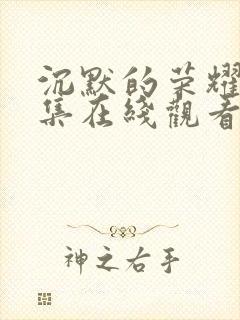 沉默的荣耀
集在綫觀看
神之右手